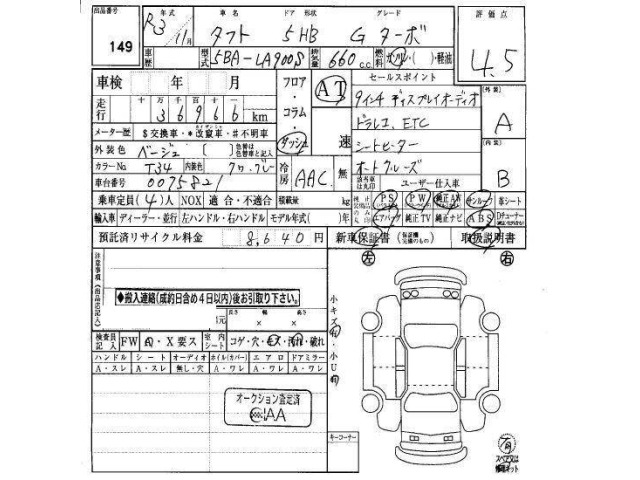 出品番号
149
年式 車名 ドア 形状 グレード 評価点
R3 11月 タフト 5HB Gターボ 4.5
車歴 型式 5BA-LA900S 排気量 660 c.c. 燃料 ガソリン・( )・軽油
車検 年 月 フロア・コラム・ダッシュ AT 速 セールスポイント
走行 十万千百十一
36966 km
9インチ ディスプレイオーディオ
外装 A
メーター歴 $交換車・*改竄車・#不明車
ドラレコ、ETC
外装色 ベージュ [ ] 色替等 色替車と記入
シートヒーター
内装 B
カラーNo. T34 内装色 クロ、グレー 冷房 AAC 無
オートクルーズ
車台番号 0075821
該当車は丸印 ユーザー仕入車
乗車定員(4)人 NOX 適合・不適合 積載量 kg 純正のみ丸印 PS PW 純正AW サンルーフ 革シート
輸入車 ディーラー・並行 左ハンドル・右ハンドル モデル年式( )年 エアバッグ 純正TV 純正ナビ ABS Dチューナー
預託済リサイクル料金 8,640 円 新車保証書(保証機交換のもの) 取扱説明書
注意事項(出品店記入)
左 右
◆搬入連絡(成約日含め4日以内)後お引取り下さい。
元 長さ 幅 高さ
× ×
小キズ有・小U有
検査員記入 FW 有・X要ス 室内シート コゲ・穴・モス・汚れ・破れ
ハンドル シート オーディオ ホイル(カバー) エアロ ドアミラー
A・スレ A・スレ 無し・穴 A・ワレ A・ワレ A・ワレ
オークション査定済
JAA
キーコーナー
スペアタイヤ